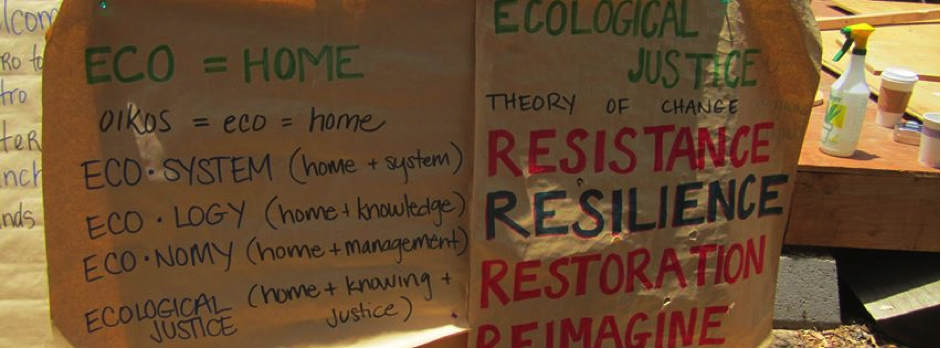 ECO = HOME
OIKOS = eco = home
ECO·SYSTEM (home + system)
ECO·LOGY (home + knowledge)
ECO·NOMY (home + management)
ECOLOGICAL JUSTICE (home + knowing + justice)
ECOLOGICAL
JUSTICE
THEORY OF CHANGE
RESISTANCE
RESILIENCE
RESTORATION
REIMAGINE